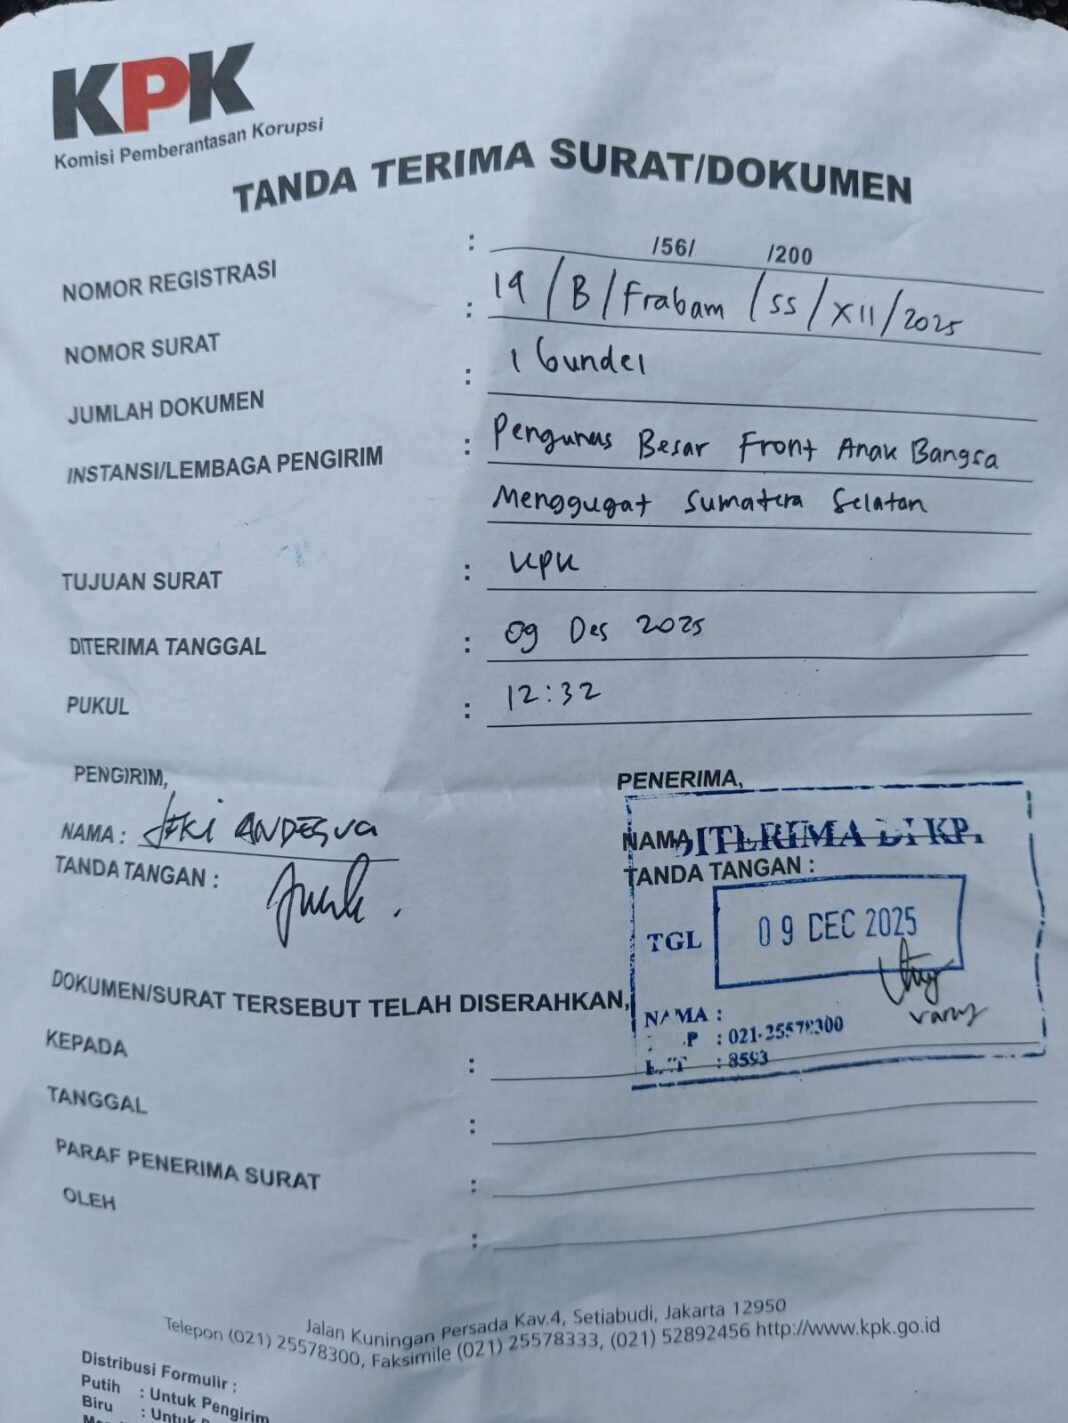 KPK
Komisi Pemberantasan Korupsi
TANDA TERIMA SURAT/DOKUMEN
NOMOR REGISTRASI : /56/ /200
NOMOR SURAT : 19/B/Frabam/SS/XII/2025
JUMLAH DOKUMEN : 1 bundel
INSTANSI/LEMBAGA PENGIRIM : Pengurus Besar Front Anak Bangsa
Menggugat Sumatera Selatan
TUJUAN SURAT : KPK
DITERIMA TANGGAL : 09 Des 2025
PUKUL : 12:32
PENGIRIM,
NAMA : ANDESVA
TANDA TANGAN :
PENERIMA,
NAMA DITERIMA DI KP
TANDA TANGAN :
TGL 09 DEC 2025
NAMA :
: 021-25578300
: 8593
DOKUMEN/SURAT TERSEBUT TELAH DISERAHKAN,
KEPADA :
TANGGAL :
PARAF PENERIMA SURAT :
OLEH :
Jalan Kuningan Persada Kav.4, Setiabudi, Jakarta 12950
Telepon (021) 25578300, Faksimile (021) 25578333, (021) 52892456 http://www.kpk.go.id
Distribusi Formulir :
Putih : Untuk Pengirim
Biru : Untuk